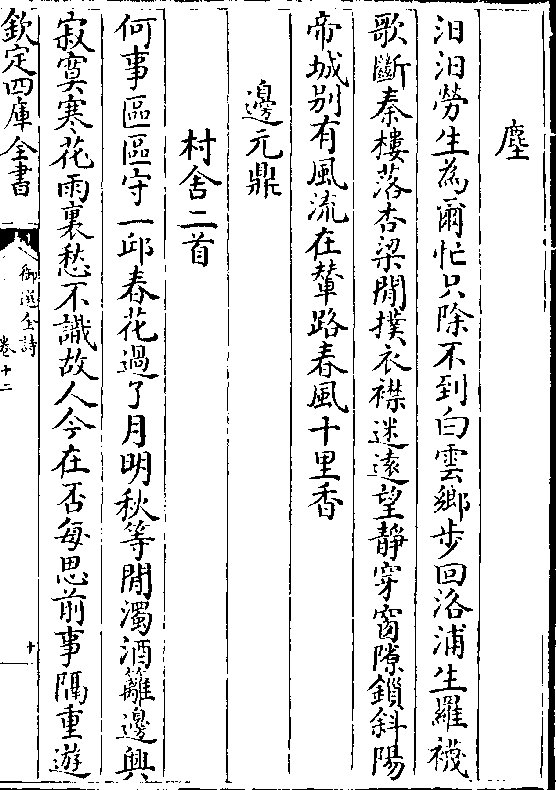 塵
汨汨勞生為爾忙只除不到白雲鄉步回洛浦生羅襪
歌斷秦樓落杏梁閒撲衣襟迷遠望靜穿窗隙鎖斜陽
帝城别有風流在輦路春風十里香
邊元鼎
村舍二首
何事區區守一邱春花過了月明秋等閒濁酒籬邊興
寂寞寒花雨裏愁不識故人今在否每思前事隔重遊
欽定四庫全書
御選金詩
卷十二
十